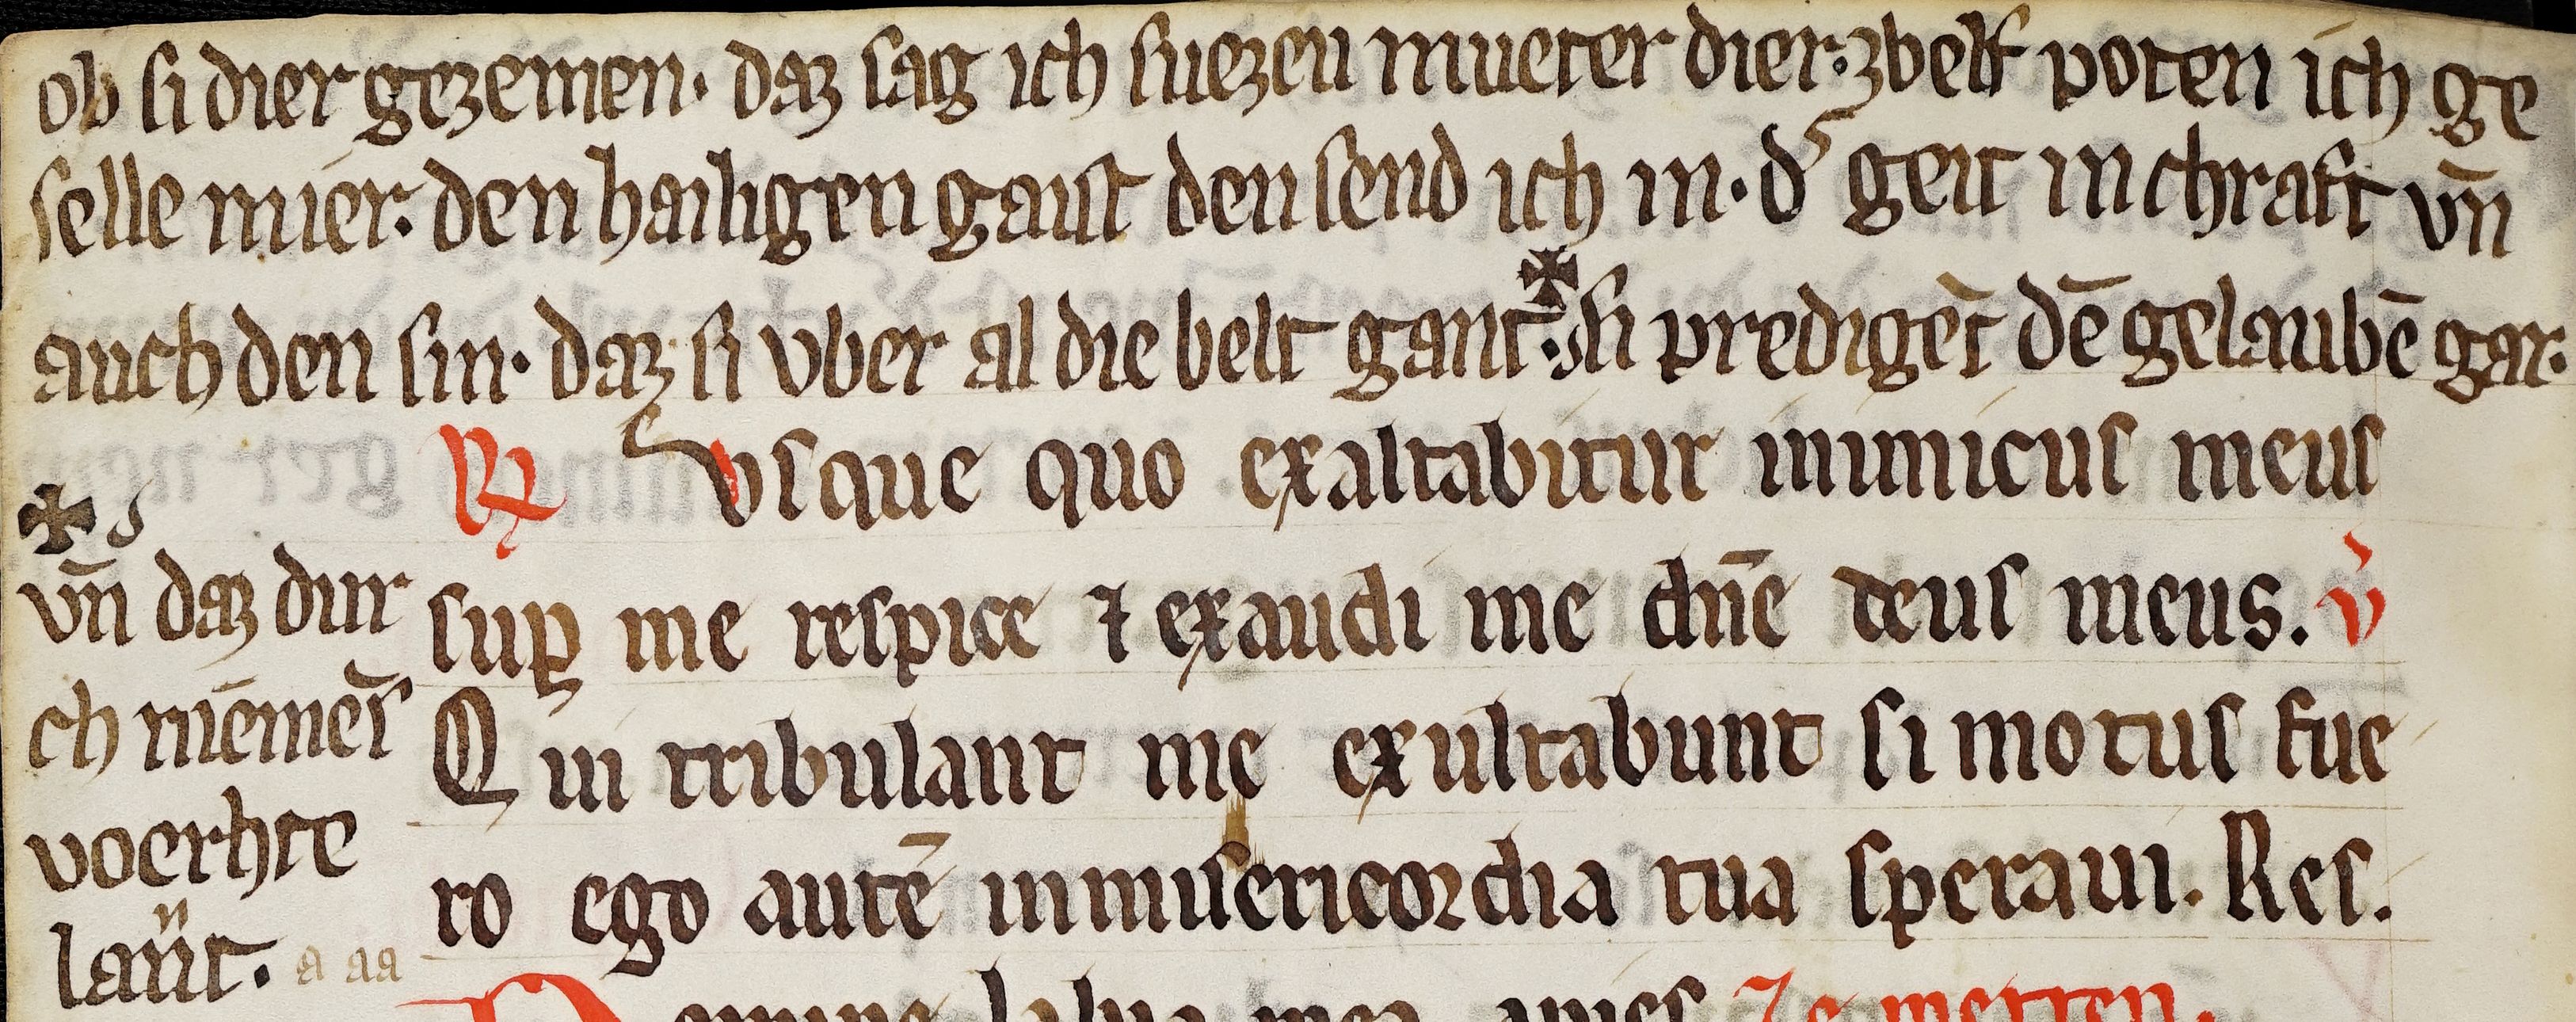 ob si dier gezemen. daz sag ich suezeu mueter dier. zbelf poten ich ge
selle mier. den hailigen gaist den send ich in. d̕ geit in chraft vn̄
auch den sin. daz si vber al die belt gant. ✠ si predigēt dē gelaubē gar.
℟ vsque quo exaltabitur inimicus meus
sup me respice ⁊ exaudi me dn̄e deus meus. v̓
Qui tribulant me exultabunt si motus fue
ro ego autē in misericordia tua speraui. Res.
✠
vn̄ daz dur
ch niemēs
voerhte
laüt. a aa
Domine labia mea apies Ze metten.